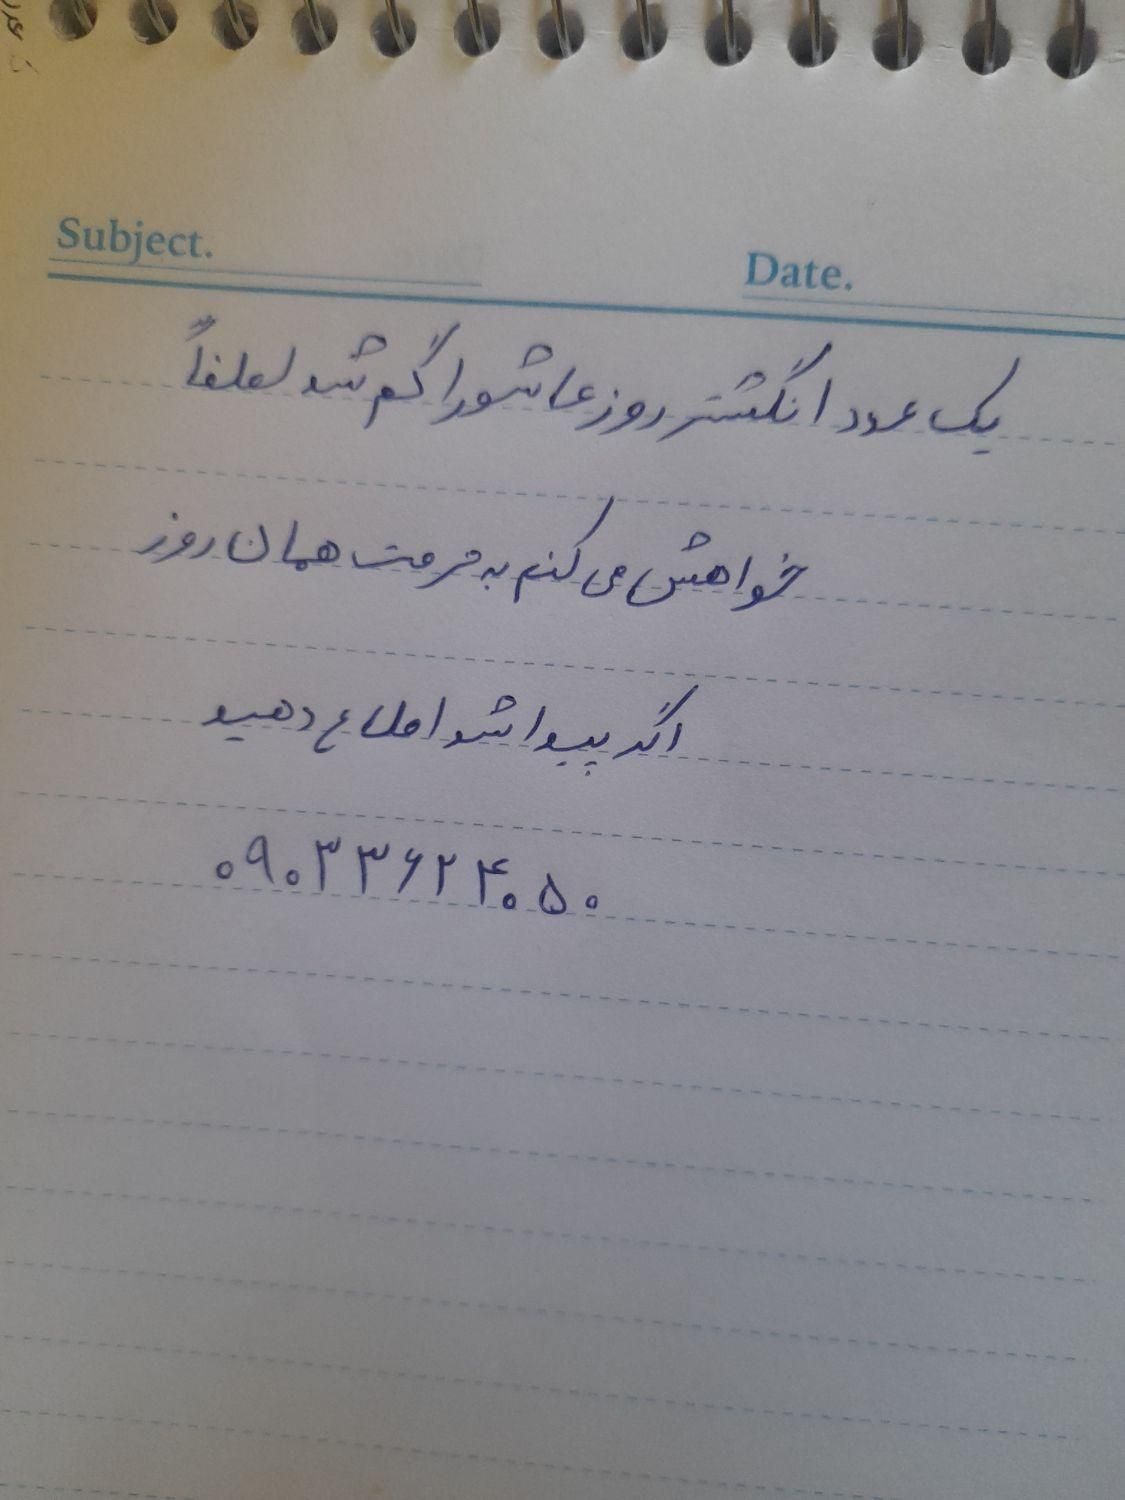 Subject.
Date.
یک عدد انگشتر روز عاشورا گم شد لطفاً
خواهش می کنم به حرمت همان روز
اگر پیدا شد اطلاع دهید
۰۹۰۳۳۶۲۴۰۵۰